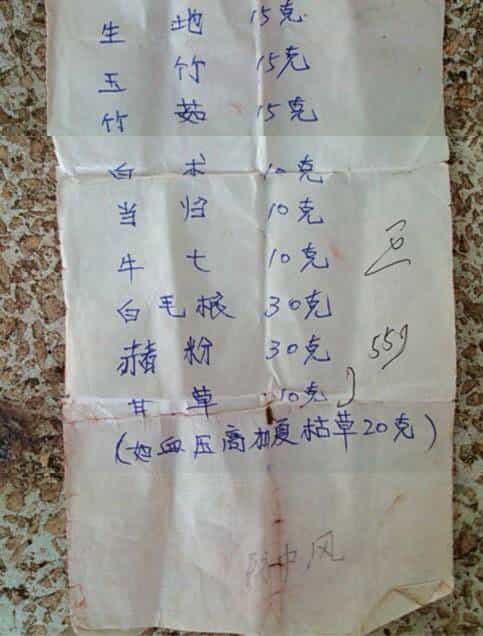 生地 15克
玉竹 15克
竹茹 15克
白术 10克
当归 10克
牛七 10克
白毛根 30克
赭粉 30克
甘草 10克
(如血压高加夏枯草20克)
防中风